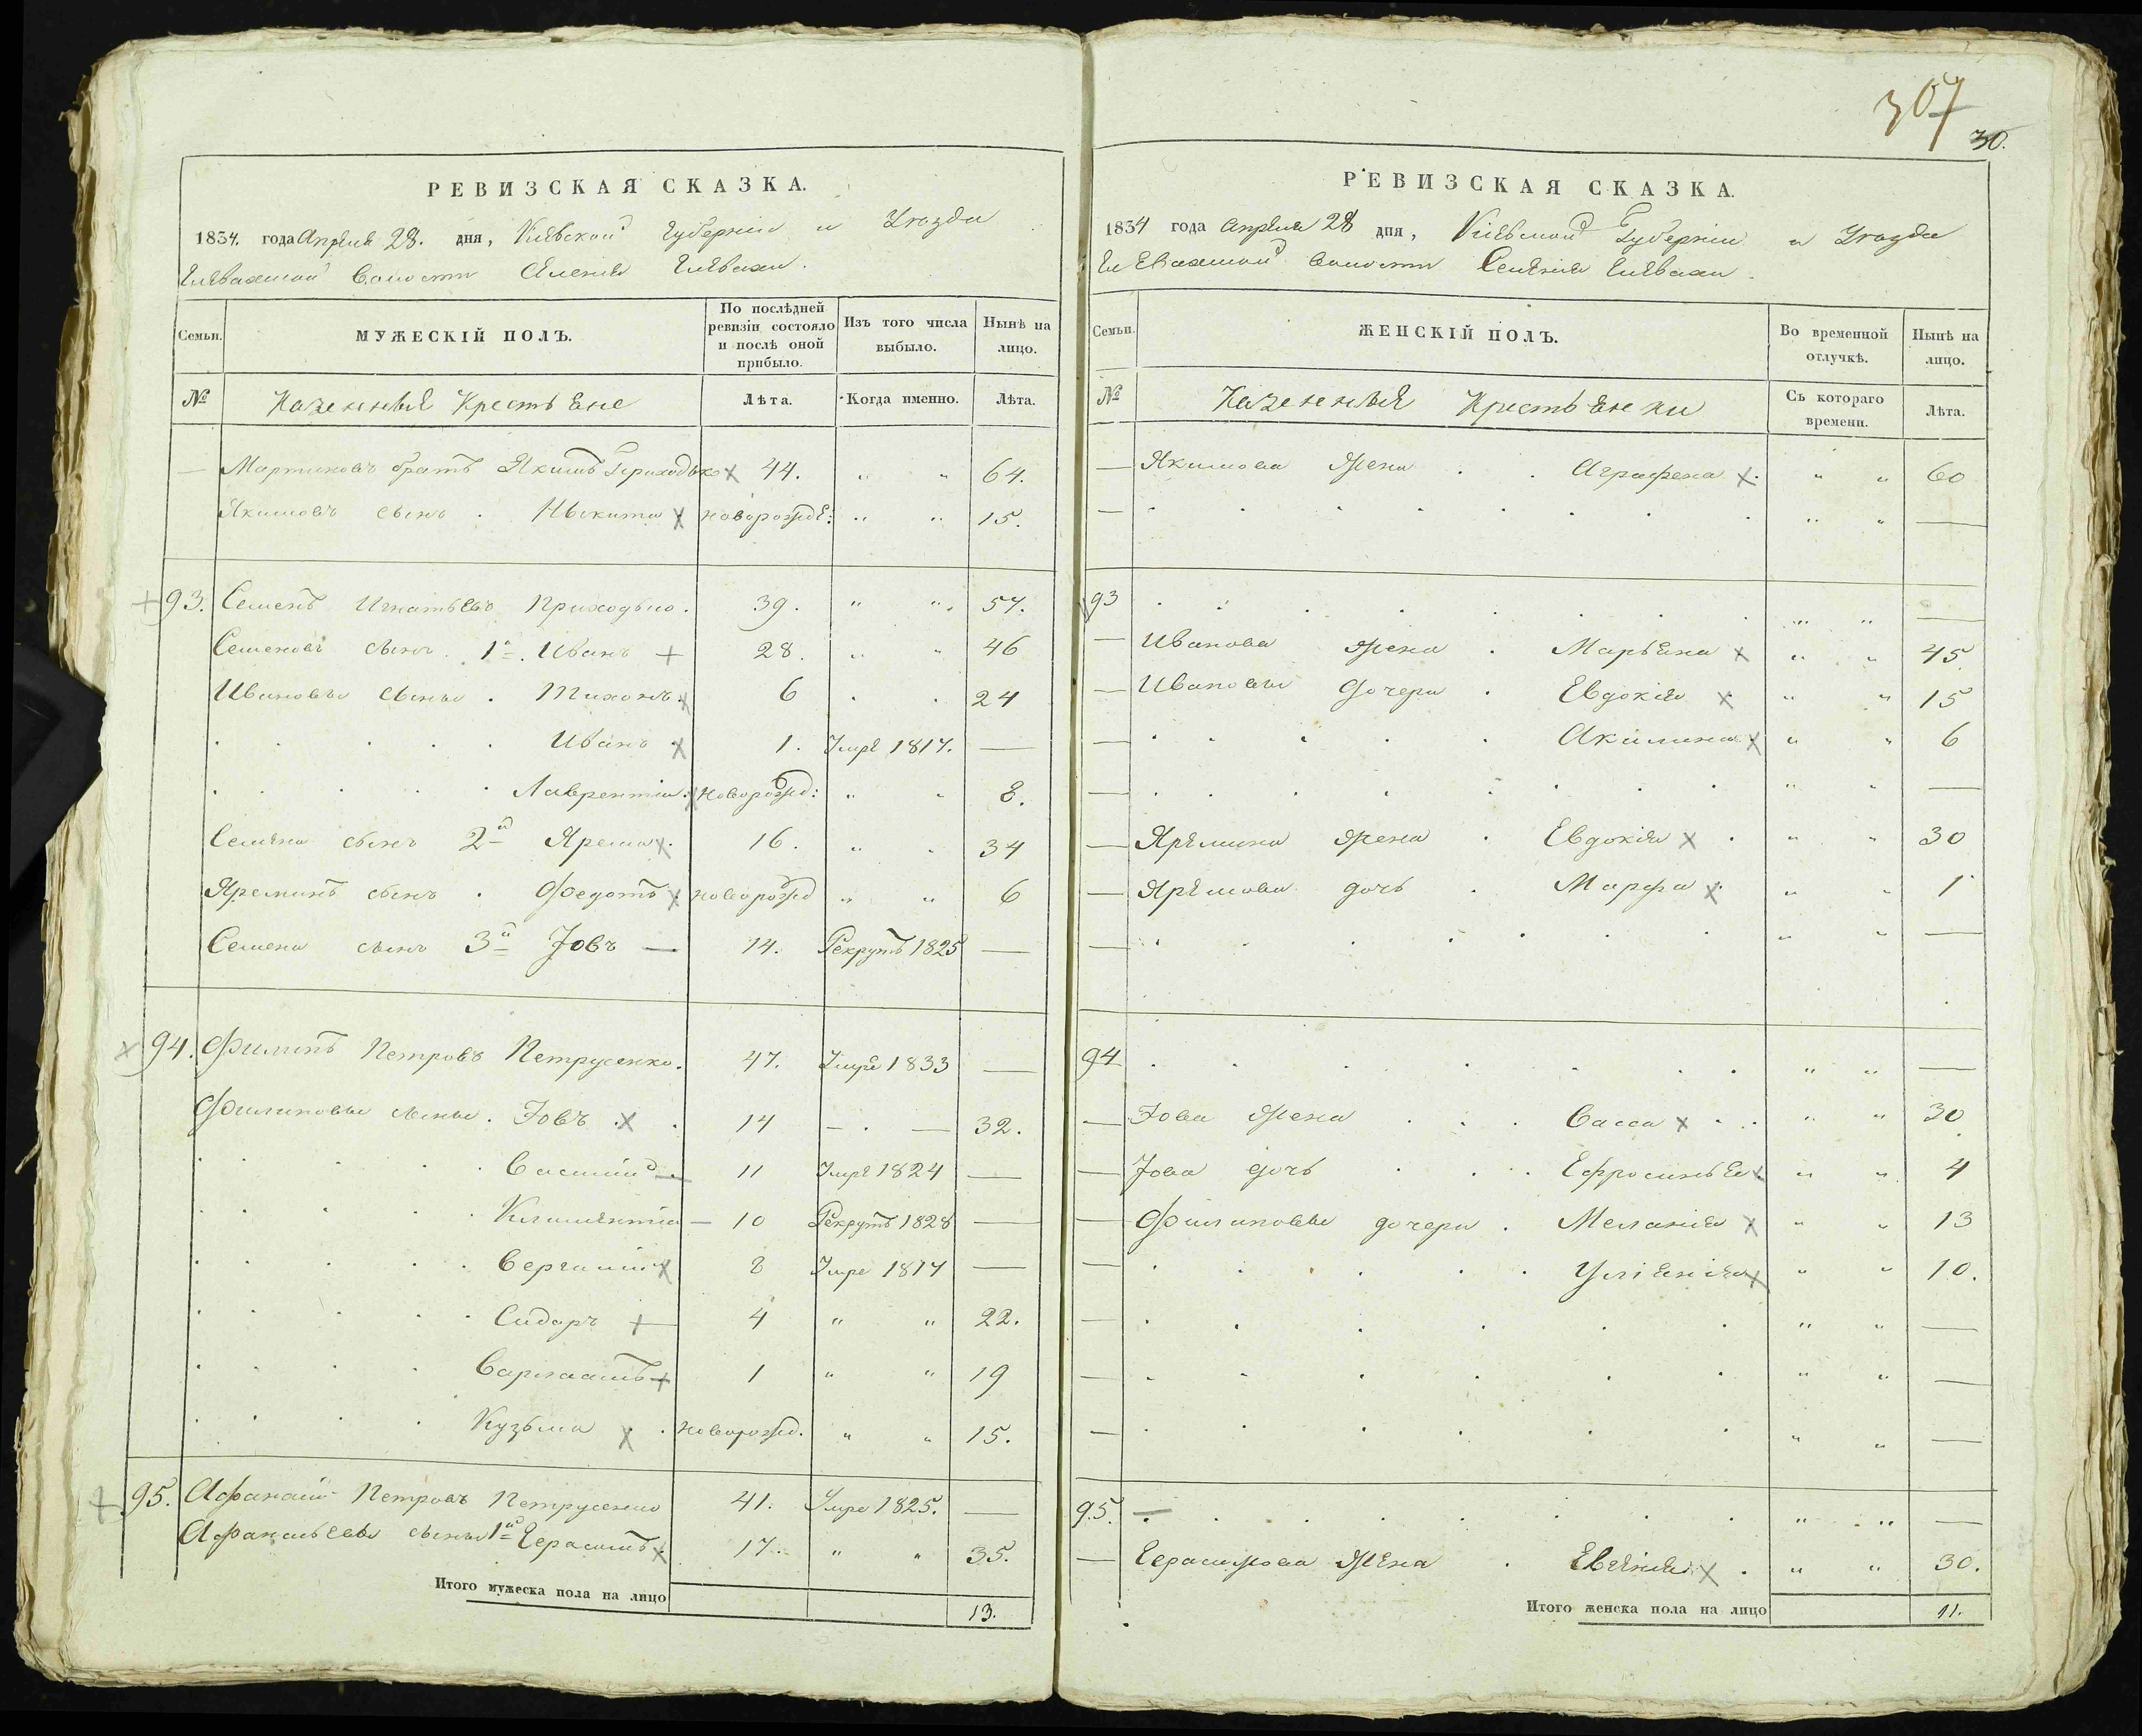 307
30.
РЕВИЗСКАЯ СКАЗКА.
1834. года Апреля 28. дня, Кіевской Губерніи и Уезда
Гльвахской Волости Селенія Гльвахи.
Семьи. МУЖЕСКІЙ ПОЛЪ. По послѣдней ревизіи состояло и послѣ оной прибыло. Изъ того числа выбыло. Нынѣ на лицо.
№ Казенныя Крестьяне Лѣта. Когда именно. Лѣта.
— Мартиновъ братъ Якимъ Приходько х 44. " " 64.
Якимовъ сынъ . Никита х новорожде: " " 15.
+ 93. Семенъ Игнатьевъ Приходько. 39. " " 57.
Семеновъ сынъ. 1й. Иванъ + 28. " " 46
Ивановы сыны . Тихонъ. х 6 . . 24
. . . . . Иванъ х 1. Умре 1817. —
. . . . . Лаврентій. х новорожд: " " 8.
Семена сынъ 2й Ярема х. 16. " " 34
Яреминъ сынъ . Федотъ х новорожд " " 6
Семена сынъ 3й Іовъ — 14. Рекрутъ 1825 —
х 94. Филипъ Петровъ Петрусенко. 47. Умре 1833 —
Филиповы сыны. Іовъ .х . 14 — . — 32.
. . . . . Василій — 11 Умре 1824 —
. . . . . Климентій — 10 Рекрутъ 1828 —
. . . . . Сергій х 8 Умре 1817 —
. . . . . Сидоръ + 4 " " 22.
. . . . Варлаамъ + 1 " " 19
. . . . Кузьма х . новорожд. " " 15.
+ 95. Афанасій Петровъ Петрусенко 41. Умре 1825. —
Афанасьевы сыны 1й Герасимъ х 17. " " 35.
Итого мужеска пола на лицо 13.
РЕВИЗСКАЯ СКАЗКА.
1834 года Апреля 28 дня, Кіевской Губерніи и Уезда
Гльвахской Волости Селенія Гльвахи.
Семьи. ЖЕНСКІЙ ПОЛЪ. Во временной отлучкѣ. Нынѣ на лицо.
№ Казенныя Крестьянки Съ котораго времени. Лѣта.
— Якимова жена . . Аграфена х. " " 60
— . . . . . . . . " " —
93 . . . . . . . " " —
— Иванова жена . Марьяна х " " 45
— Ивановы дочери . Евдокія х " " 15
— . . . . . Акилина х " " 6
— . . . . . . . . " " —
— Яремина жена . Евдокія х . " " 30
— Яремова дочь . Марфа х. " " 1
— . . . . . . . " " —
94 . . . . . . . " " —
— Іова жена . . . Васса х . . " " 30
— Іова дочь . . . Ефросинья х " " 4
— Филиповы дочери . Меланія х " " 13
— . . . . . Уліянія х " " 10.
— . . . . . . " " —
— . . . . . . " " —
— . . . . . . " " —
95. — . . . . . . . " " —
— Герасимова жена . Евгенія х . " " 30.
Итого женска пола на лицо 11.